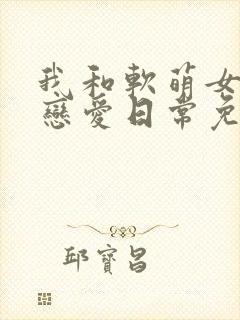 我和軟萌女
戀愛日常免
邱寶昌